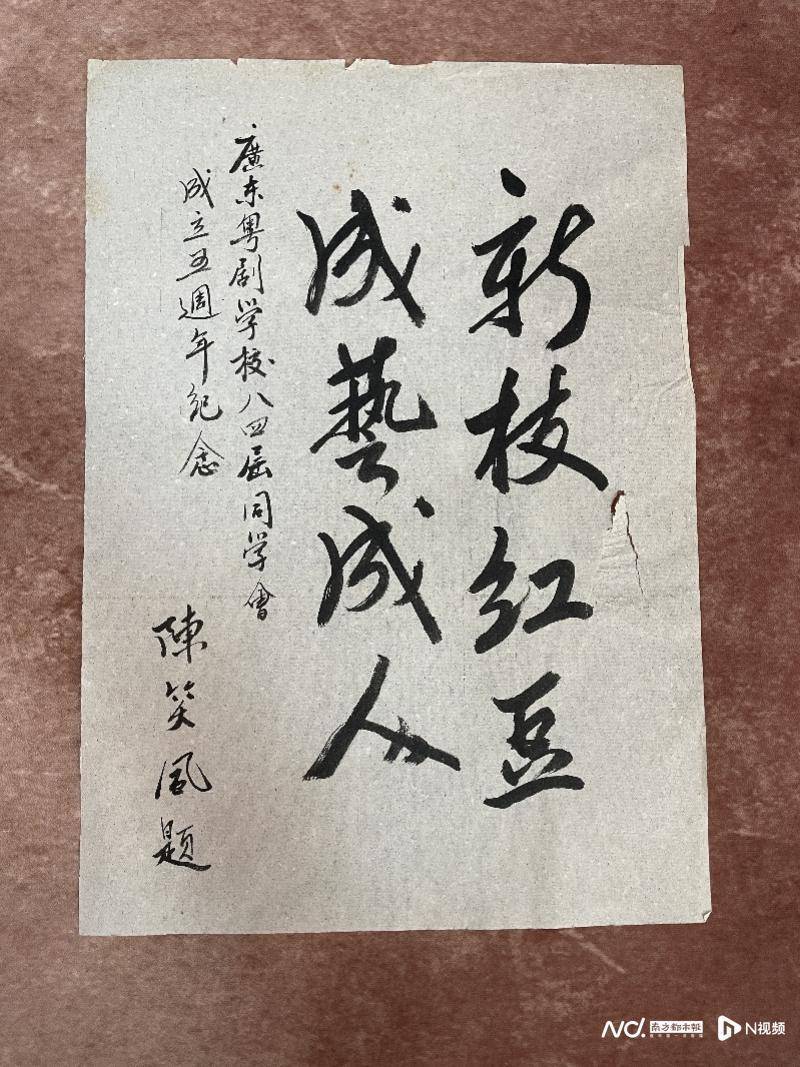 新枝红豆
成藝成人
廣东粤剧学校八四届同学會
成立五週年纪念
陳笑風題
南方都市报
N视频